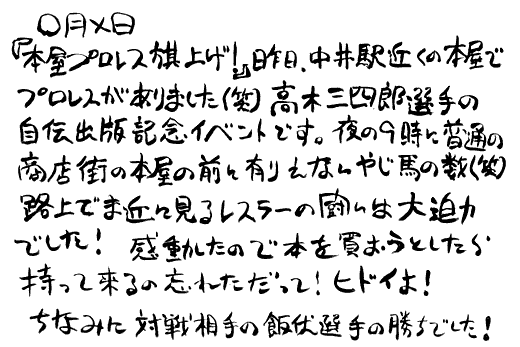 〇月×日
『本屋プロレス旗上げ!』昨日、中井駅近くの本屋で
プロレスがありました(笑)高木三四郎選手の
自伝出版記念イベントです。夜の9時に普通の
商店街の本屋の前に有りえないやじ馬の数(笑)
路上でま近に見るレスラーの闘いは大迫力
でした! 感動したので本を買おうとしたら
持って来るの忘れただって!ヒドイよ!
ちなみに対戦相手の飯伏選手の勝ちでした!